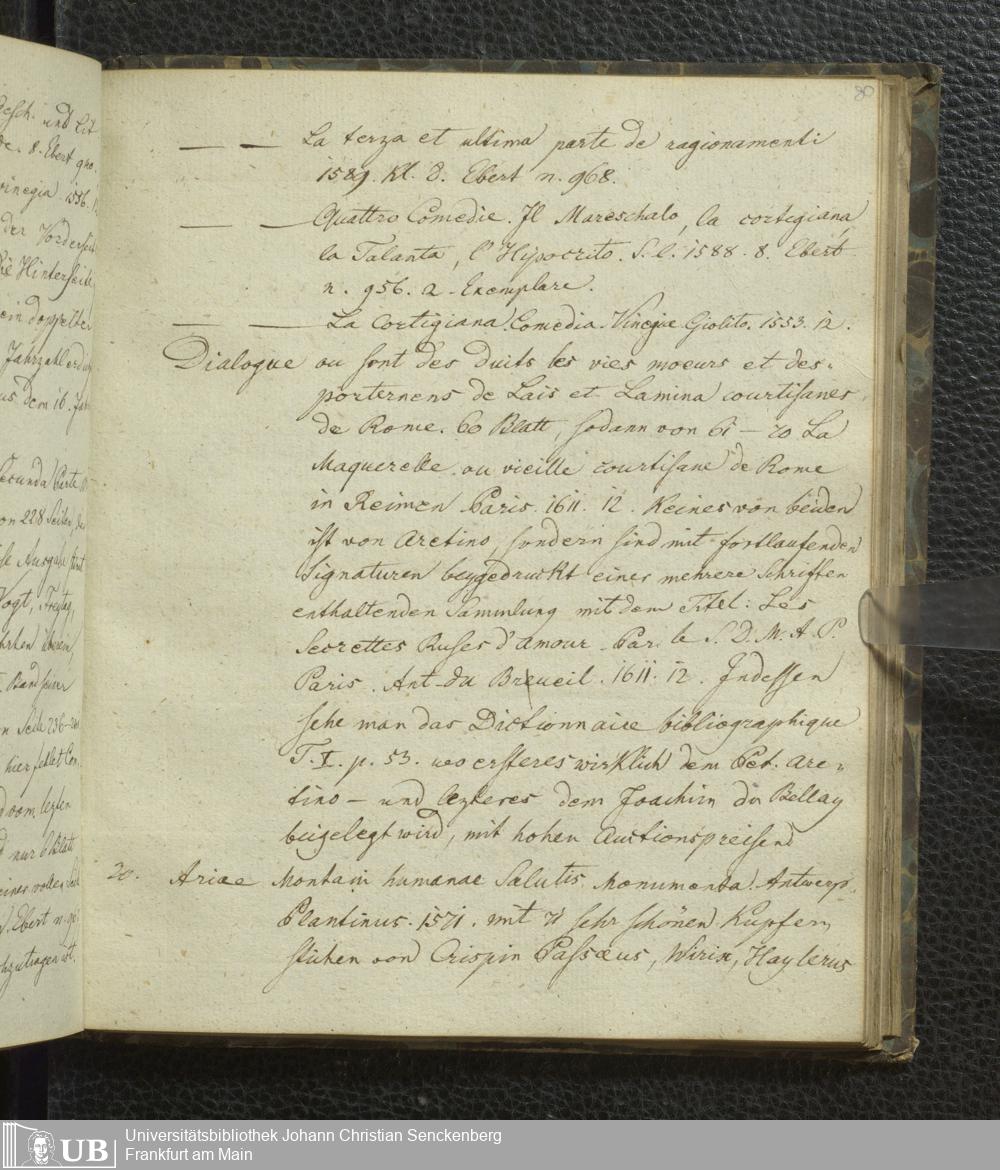 80
— — La terza et ultima parte de ragionamenti
1589. Kl. 8. Ebert n. 968.
— — Quattro Comedie. Il Mareschalo, la cortigiana,
la Talanta, l'Hipocrito. S. l. 1588. 8. Ebert
n. 956. 2 Exemplare.
— — La Cortigiana Comedia. Vinegia Giolito. 1553. 12.
Dialogue ou sont des duits les vies moeurs et des-
porternens de Lais et Lamina courtisanes
de Rome. 60 Blatt, sodann von 61 — 70 La
Maquerelle ou vieille courtisane de Rome
in Reimen Paris. 1611. 12. Keines von beiden
ist von Aretino, sondern sind mit fortlaufenden
Signaturen beygedruckt einer mehrere Schriften
enthaltenden Sammlung mit dem Titel: Les
Secrettes Ruses d'Amour. Par le S. D. M. A. P.
Paris. Ant. du Breueil. 1611. 12. Indessen
sehe man das Dictionnaire bibliographique
T. I. p. 53. wo ersteres wirklich dem Pet. Are-
tino — und lezteres dem Joachim du Bellay
beigelegt wird, mit hohen Auctionspreisen
20. Ariae Montani humanae Salutis Monumenta. Antwerp.
Plantinus. 1571. mit 71 sehr schönen Kupfer
stichen von Crispin Passaeus, Wirix, Haylerus
und Lit
8. Ebert
vinegia 1536.
der Vorderseite
Hinterseite
ein doppelter
Jahrzahl
dem 16. Jah
Secunda Parte
von 228 Seiten,
Ausgabe
Vogt, Freytag,
Seite 236
hier fehlet
vom lezten
nur 6 Blatt
einer vollen
Ebert n.
UB
Universitätsbibliothek Johann Christian Senckenberg
Frankfurt am Main